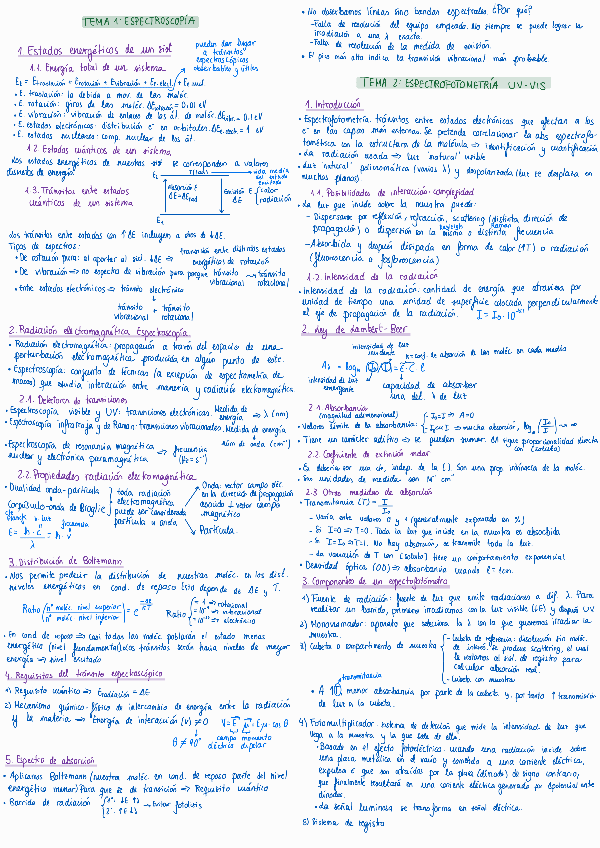 TEMA 1: ESPECTROSCOPÍA
1. Estados energéticos de un sist
pueden dar lugar
a tránsitos
espectroscópicos
observables y útiles
1.1. Energía total de un sistema
• E. traslación: la debida a mov. de las moléc.
• E. rotación: giros de las moléc. ΔE rotación = 0.01 eV
• E. vibración: vibración de enlace de los át. de moléc. = 0.1 eV
• E. estados electrónicos: distribución e⁻ en orbitales. = 1 eV
• E. estados nucleares: comp. nuclear de los át.
1.2. Estados cuánticos de un sistema
Los estados energéticos de nuestras se corresponden a valores
discretos de energía
1.3. Tránsitos entre estados
cuánticos de un sistema
Absorción E
Emisión E
calor
radiación
vida media
del estado
excitado
Los tránsitos entre estados con ↑ΔE incluyen a otros de ↓ΔE.
Tipos de espectros:
• De rotación pura: al aportar al sist. ↓ΔE ⇒ transición entre distintos estados
energéticos de rotación
• De vibración ⇒ no espectro de vibración puro porque tránsito vibracional → tránsito rotacional
• Entre estados electrónicos ⇒ tránsito electrónico
tránsito vibracional + tránsito rotacional
2. Radiación electromagnética. Espectroscopía
• Radiación electromagnética: propagación a través del espacio de una
perturbación electromagnética producida en algún punto de este.
• Espectroscopía: conjunto de técnicas (a excepción de espectrometría de
masas) que estudia interacción entre materia y radiación electromagnética
2.1. Detectores de transiciones
• Espectroscopía visible y UV: transiciones electrónicas. Medida de energía ⇒ λ (nm)
• Espectroscopía infrarroja y de Raman: transiciones vibracionales. Medida de energía
núm de onda (cm⁻¹)
• Espectroscopía de resonancia magnética
nuclear y electrónica paramagnética ⇒ frecuencia
(Hz = s⁻¹)
2.2. Propiedades radiación electromagnética
• Dualidad onda-partícula
Corpúsculo-onda de Broglie
toda radiación
electromagnética
puede ser considerada
partícula u onda
Onda: vector campo eléc.
en la dirección de propagación
asociado ⊥ vector campo
magnético
Partícula
frecuencia
3. Distribución de Boltzmann
• Nos permite predecir la distribución de nuestras moléc. en los dist.
niveles energéticos en cond. de reposo. Esto depende de ΔE y T.
Ratio (nº moléc nivel superior / nº moléc nivel inferior)
Ratio
⇒ rotacional
⇒ vibracional
⇒ electrónico
• En cond de reposo ⇒ casi todas las moléc. poblarán el estado menos
energético (nivel fundamental) ∴ los tránsitos serán hacia niveles de mayor
energía ⇒ nivel excitado
4. Requisitos del tránsito espectroscópico
1) Requisito cuántico ⇒ E radiación = ΔE
2) Mecanismo químico-físico de intercambio de energía entre la radiación
y la materia ⇒ Energía de interacción (V) ≠ 0
θ ≠ 90º
campo eléctrico
momento dipolar
5. Espectro de absorción
• Aplicamos Boltzmann (nuestra moléc. en cond. de reposo parte del nivel
energético menor) para que se dé transición ⇒ Requisito cuántico
• Barrido de radiación
1º: ↓E ↑λ
2º: ↑E ↓λ
→ Evitar fotólisis
• No observamos líneas sino bandas espectrales. ¿Por qué?
- Falta de radiación del equipo empleado. No siempre se puede lograr la
irradiación a una λ exacta
- Falta de resolución de la medida de emisión.
• El pico más alto indica la transición vibracional más probable.
TEMA 2: ESPECTROFOTOMETRÍA UV-VIS
1. Introducción
• Espectrofotometría: tránsitos entre estados electrónicos que afectan a los
e⁻ en las capas más externas. Se pretende correlacionar la abs espectrofo-
tométrica con la estructura de la molécula ⇒ identificación y cuantificación
• La radiación usada ⇒ luz "natural" visible
• Luz "natural": policromática (varias λ) y despolarizada (luz se desplaza en
muchos planos)
1.1. Posibilidades de interacción: complejidad
• La luz que incide sobre la muestra puede:
- Dispersarse por reflexión, refracción, scattering (distinta dirección de
propagación) o dispersión en la misma o distinta frecuencia
Rayleigh
Raman
- Absorbida y después disipada en forma de calor (↑T) o radiación
(fluorescencia o fosforescencia)
1.2. Intensidad de la radiación
• Intensidad de la radiación: cantidad de energía que atraviesa por
unidad de tiempo una unidad de superficie colocada perpendicularmente
al eje de propagación de la radiación.
2. Ley de Lambert-Beer
intensidad de luz
incidente
intensidad de luz
emergente
capacidad de absorber
una del. λ de luz
2.1. Absorbancia
(magnitud adimensional)
• Valores límite de la absorbancia:
I₀ = I ⇒ A = 0
mucha absorción,
• Tiene un carácter aditivo ⇒ se pueden sumar. Es sigue proporcionalidad directa
con [soluto]
2.2. Coeficiente de extinción molar
• Es debería ser una cte, indep. de la []. Son una prop. intrínseca de la moléc.
• Sus unidades de medida son M⁻¹ cm⁻¹
2.3. Otras medidas de absorción
• Transmitancia (T) = I / I₀
- Varía entre valores 0 y 1 (generalmente expresado en %)
- Si I=0 ⇒ T=0. Toda la luz que incide en la muestra es absorbida
- Si I=I₀ ⇒ T=1. No hay absorción, se transmite toda la luz.
- La variación de T con [soluto] tiene un comportamiento exponencial
• Densidad óptica (OD) ⇒ absorbancia cuando l = 1cm.
3. Componentes de un espectrofotómetro
1) Fuente de radiación: fuente de luz que emite radiaciones a dif. λ. Para
realizar un barrido, primero irradiamos con la luz visible (↓E) y después UV
2) Monocromador: aparato que selecciona la λ con la que queremos irradiar la
muestra.
3) Cubeta o compartimento de muestra
- Cubeta de referencia: disolución sin moléc.
de interés. Se produce scattering, el cual
le restamos al sist. de registro para
calcular absorción real.
- Cubeta con muestra
transmitancia
menor absorbancia por parte de la cubeta y, por tanto ↑ transmisión
de luz a la cubeta.
4) Fotomultiplicador: sistema de detección que mide la intensidad de luz que
llega a la muestra y la que sale de ella.
• Basado en el efecto fotoeléctrico: cuando una radiación incide sobre
una placa metálica en el vacío y sometida a una corriente eléctrica,
expulsa e⁻ que son atraídos por la placa (dinodo) de signo contrario,
que finalmente resultará en una corriente eléctrica generada por el potencial entre
dinodos.
• La señal luminosa se transforma en señal eléctrica.
5) Sistema de registro